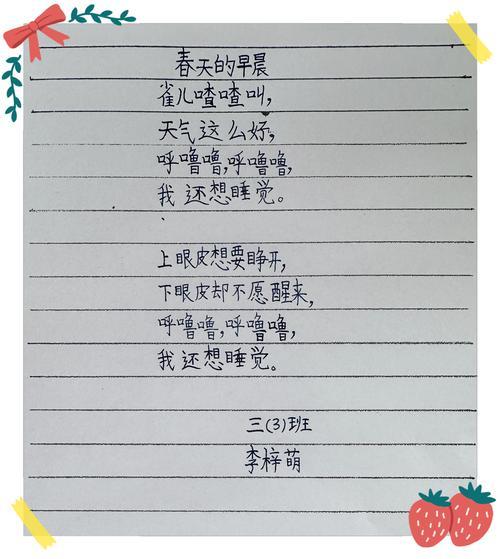 春天的早晨
雀儿喳喳叫,
天气这么好,
呼噜噜,呼噜噜,
我还想睡觉。
上眼皮想要睁开,
下眼皮却不愿醒来,
呼噜噜,呼噜噜,
我还想睡觉。
三(3)班
李梓萌